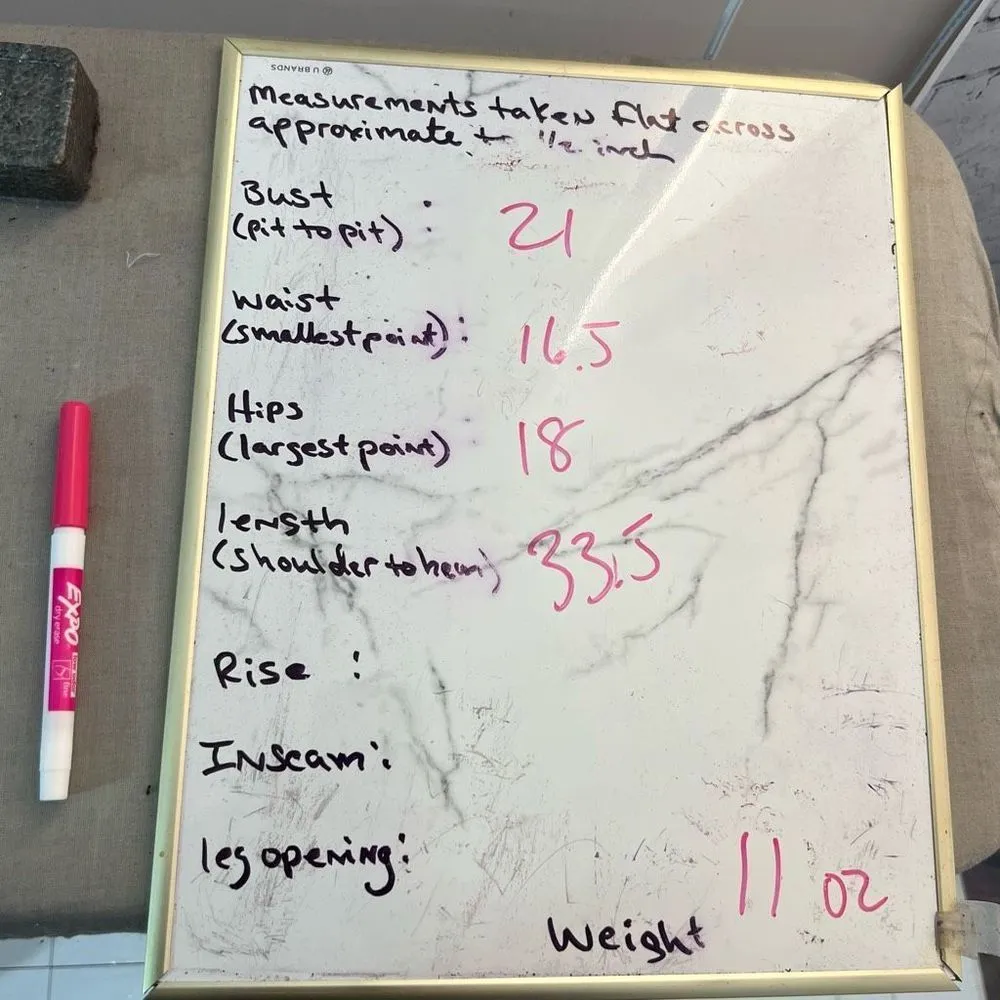 U BRANDS
Measurements taken flat across
approximate + 1/2 inch
Bust :
(pit to pit) : 21
waist
(smallest point) : 16.5
Hips
(largest point) 18
length
(shoulder to hem) 33.5
Rise :
Inseam :
leg opening :
11 oz
Weight
EXPO
dry erase
fine